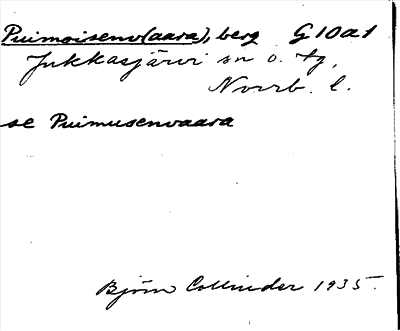 Puimoisenv(aara), berg G10a1
Jukkasjärvi sn o. tg,
Norrb. l.
se Puimusenvaara
Björn Collinder 1935.